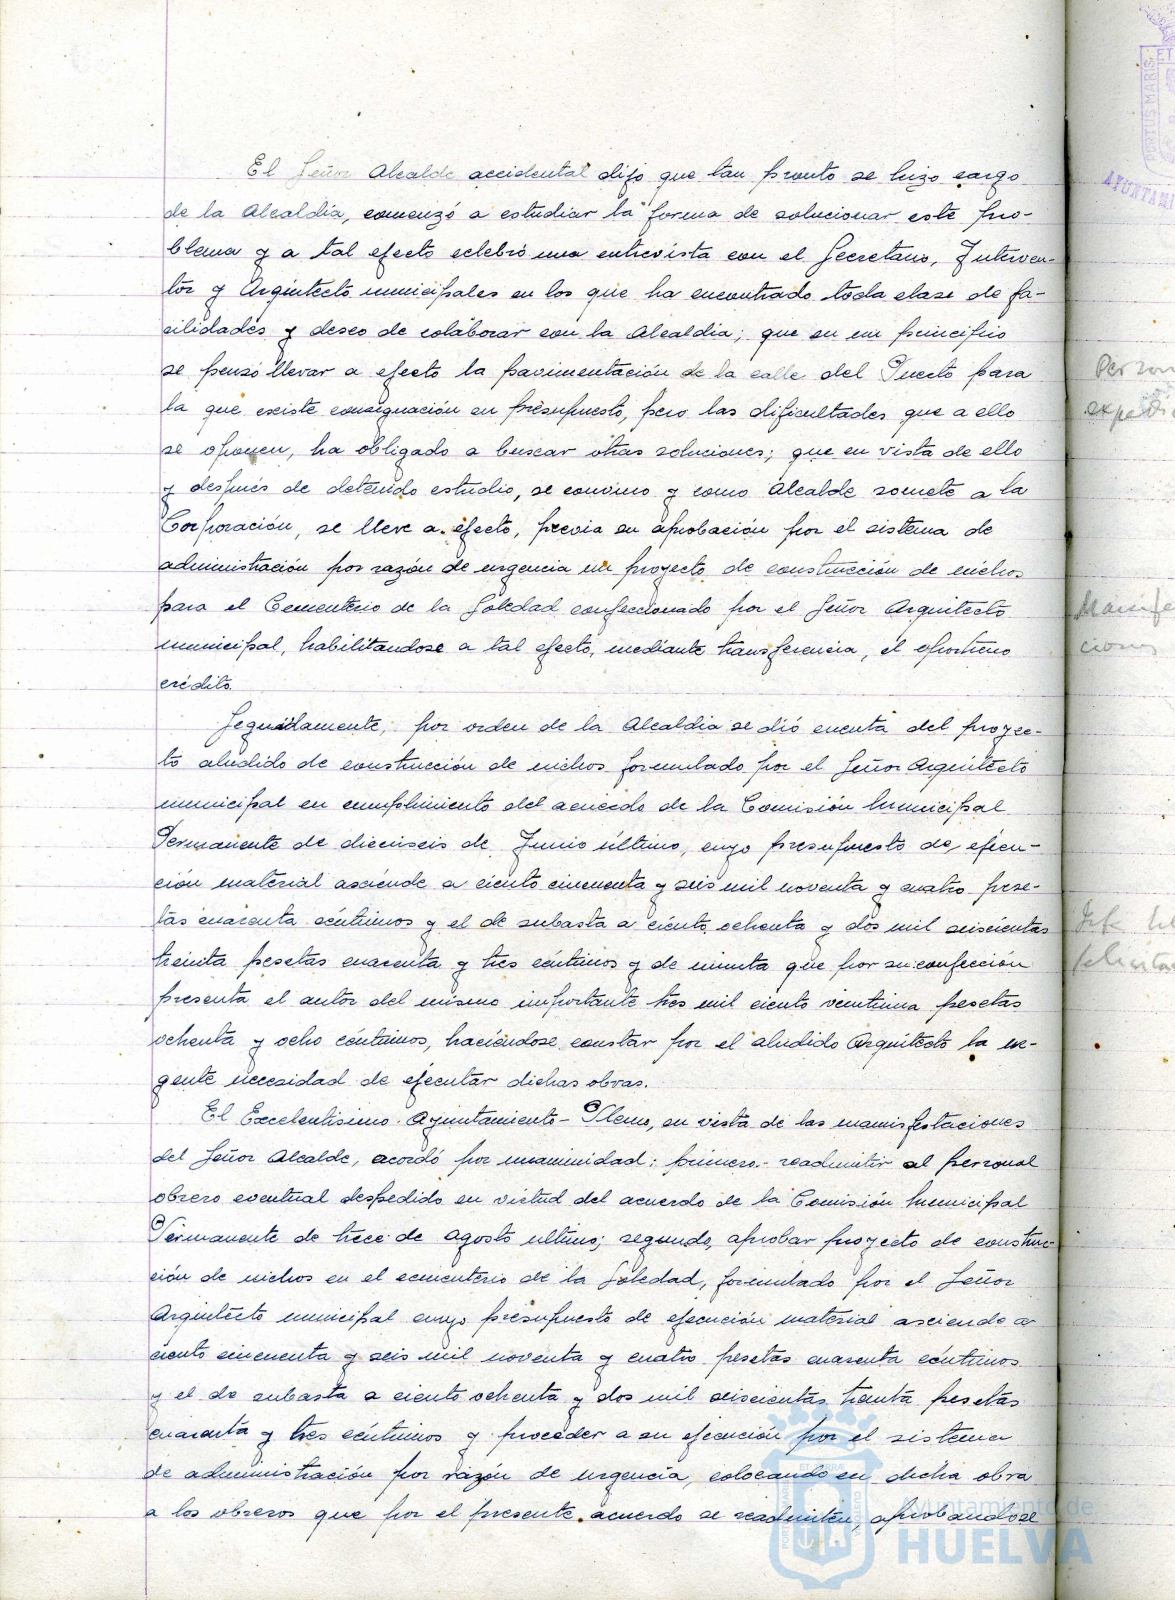 El Señor Alcalde accidental dijo que tan pronto se hizo cargo
de la Alcaldía, comenzó a estudiar la forma de solucionar este pro-
blema y a tal efecto celebró una entrevista con el Secretario, Interven-
tor y Arquitecto municipales en los que ha encontrado toda clase de fa-
cilidades y deseo de colaborar con la Alcaldia; que en un principio
se pensó llevar a efecto la pavimentación de la calle del Puerto para
la que existe consignación en presupuesto, pero las dificultades que a ello
se oponen, ha obligado a buscar otras soluciones; que en vista de ello
y después de detenido estudio, se convino y como Alcalde somete a la
Corporación, se lleve a efecto, previa su aprobación por el sistema de
administración por razón de urgencia un proyecto de construcción de nichos
para el Cementerio de la Soledad confeccionado por el Señor Arquitecto
municipal, habilitandose a tal efecto, mediante transferencia, el oportuno
crédito.
Seguidamente, por orden de la Alcaldia se dió cuenta del proyec-
to aludido de construcción de nichos formulado por el Señor Arquitecto
municipal en cumplimiento del acuerdo de la Comisión Municipal
Permanente de dieciseis de Junio último, cuyo presupuesto de ejecu-
ción material asciende a ciento cincuenta y seis mil noventa y cuatro pese-
tas cuarenta céntimos y el de subasta a ciento ochenta y dos mil seiscientas
treinta pesetas cuarenta y tres céntimos y de minuta que por su confección
presenta el autor del mismo importante tres mil ciento veintiuna pesetas
ochenta y ocho céntimos, haciéndose constar por el aludido Arquitecto la ur-
gente necesidad de ejecutar dichas obras.
El Excelentisimo Ayuntamiento-Pleno, en vista de las manifestaciones
del Señor Alcalde, acordó por unanimidad: primero.- readmitir al personal
obrero eventual despedido en virtud del acuerdo de la Comisión Municipal
Permanente de trece de Agosto ultimo; segundo, aprobar proyecto de construc-
ción de nichos en el cementerio de la Soledad, formulado por el Señor
Arquitecto municipal cuyo presupuesto de ejecución material asciende a
ciento cincuenta y seis mil noventa y cuatro pesetas cuarenta céntimos
y el de subasta a ciento ochenta y dos mil seiscientas treinta pesetas
cuarenta y tres céntimos y proceder a su ejecución por el sistema
de administración por razón de urgencia, colocando en dicha obra
a los obreros que por el presente acuerdo se readmiten, aprobandose
Ayuntamiento de
HUELVA